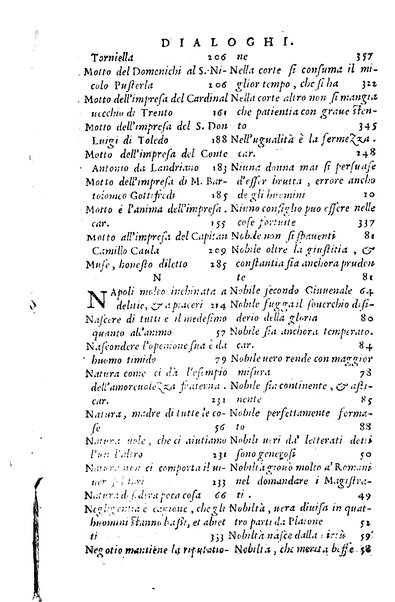 DIALOGHI.
Torniella 206
Motto del Domenichi al S. Ni-
colo Pusterla 206
Motto dell'impresa del Cardinal
uecchio di Trento 161
Motto dell'impresa del S. Don
Luigi di Toledo 188
Motto dell'impresa del Conte
Antonio da Landriano 183
Motto dell'impresa di M. Bar-
tolomeo Gottifredi 185
Motto è l'anima dell'impresa
car. 155
Motto all'impresa del Capitan
Camillo Caula 209
Muse, honesto diletto 285
N
NApoli molto inchinata a
delitie, & a piaceri 214
Nascere di tutti è il medesimo
quanto all'animo 57
Nascondere l'openione sua è da
huomo timido 79
Natura come ci dà l'esempio
dell'amoreuolezza fraterna.
car. 231
Natura, madre di tutte le co-
se 56
Natura uole, che ci aiutiamo
l'un l'altro 231
Natura non ci comporta il ui-
uer
Natura poca cosa 66
Negligentia è cagione, che gli
huomini stanno bassi, et abiet
ti 333
Negotio mantiene la riputatio-
ne 357
Nella corte si consuma il mi
glior tempo, che si ha 322
Nella corte altro non si mangia
che patientia con graue sten-
to 345
Nell'ugualità è la fermezza.
car. 248
Niuna donna mai si persuase
d'esser brutta, errore ancho
de gli huomini 20
Niuno consiglio puo essere nelle
cose fortuite 337
Nobile non si spauenti 81
Nobile oltre la giustitia, &
constantia sia anchora pruden
te 81
Nobile secondo Giuuenale 64
Nobile fugga il souerchio disi-
derio della gloria 80
Nobile sia anchora temperato.
car. 84
Nobile uero rende con maggior
misura 78
Nobile sia continente, & asti-
nente 85
Nobile perfettamente forma-
to 88
Nobili ueri da' letterati detti
sono generosi 50
Nobiltà giouò molto a' Romani
nel domandare i Magistra-
ti. 49
Nobiltà, uera diuisa in quat-
tro parti da Platone 52
Nobiltà nasce dalla uirtù 59
Nobiltà, che merita beffe 58